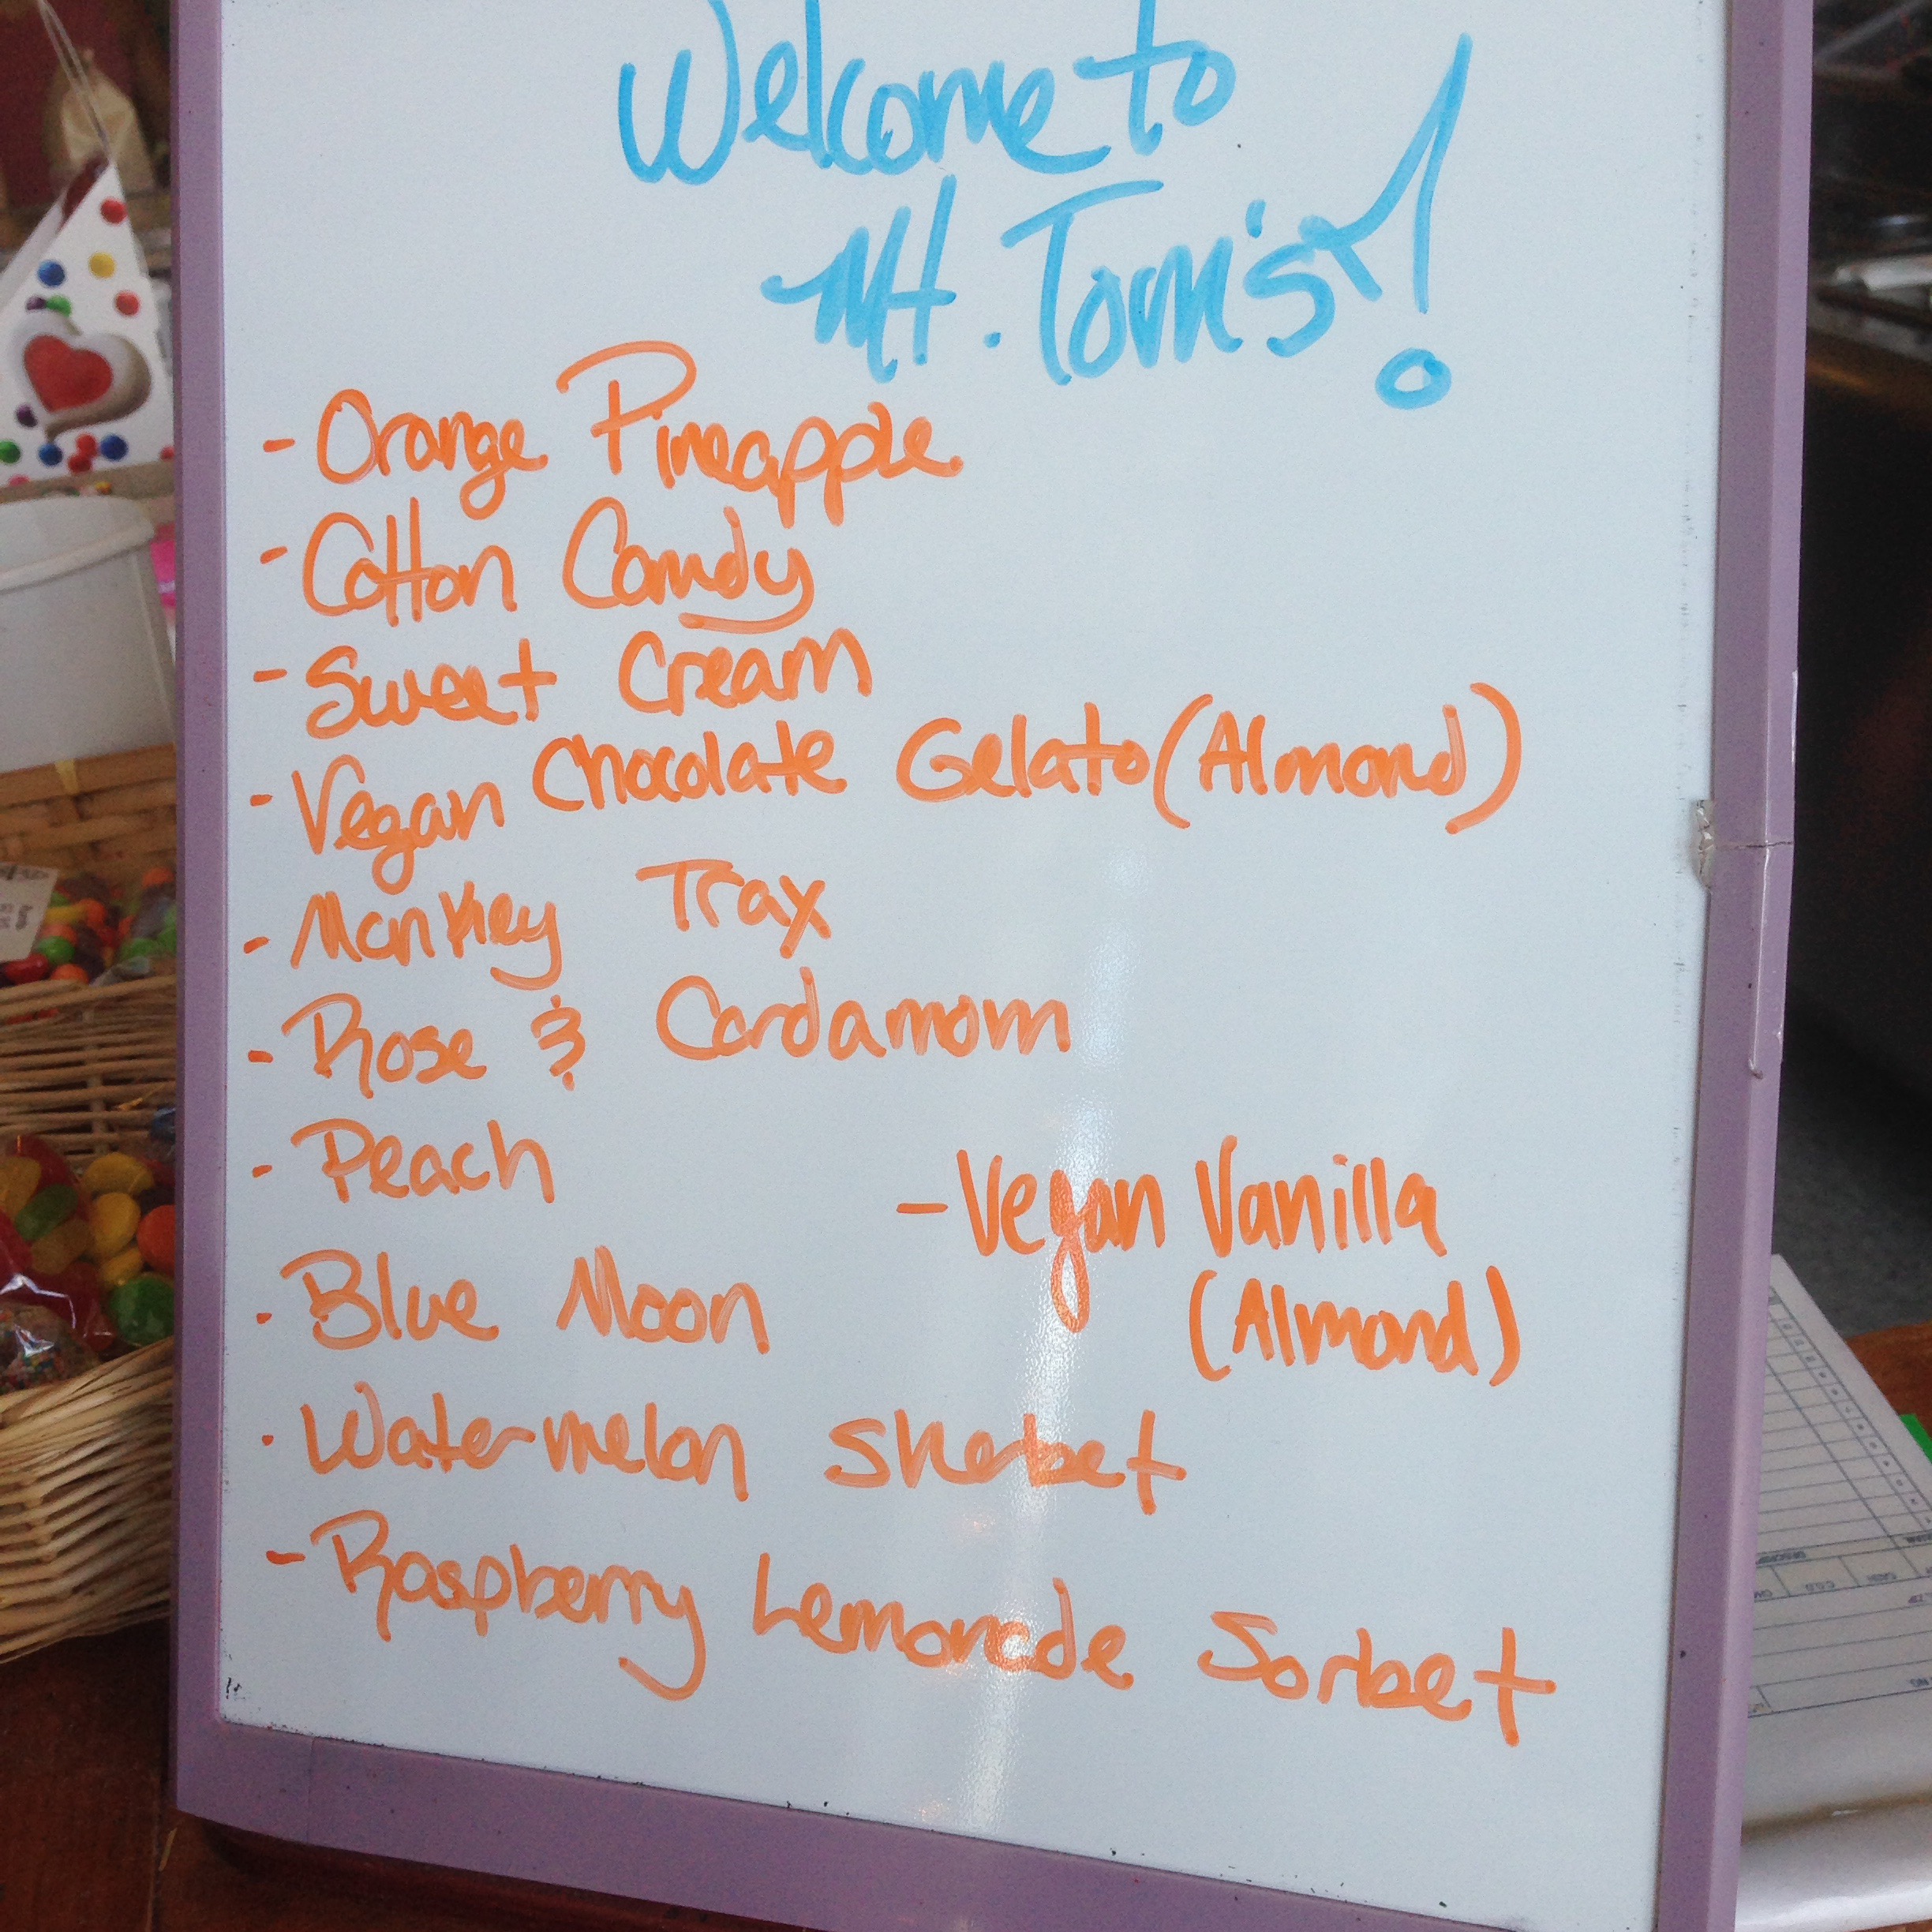 Welcome to
Mt. Tom's!
- Orange Pineapple
- Cotton Candy
- Sweet Cream
- Vegan Chocolate Gelato (Almond)
- Monkey Trax
- Rose & Cardamom
- Peach
- Vegan Vanilla
(Almond)
- Blue Moon
- Watermelon Sherbet
- Raspberry Lemonade Sorbet